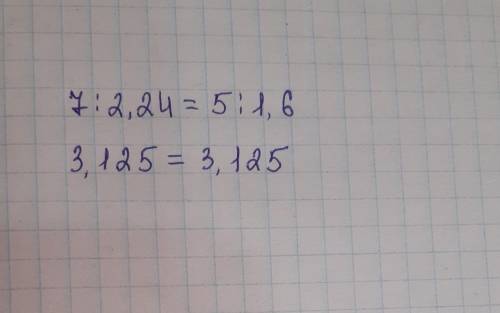 7:2,24 = 5:1,6
3,125 = 3,125